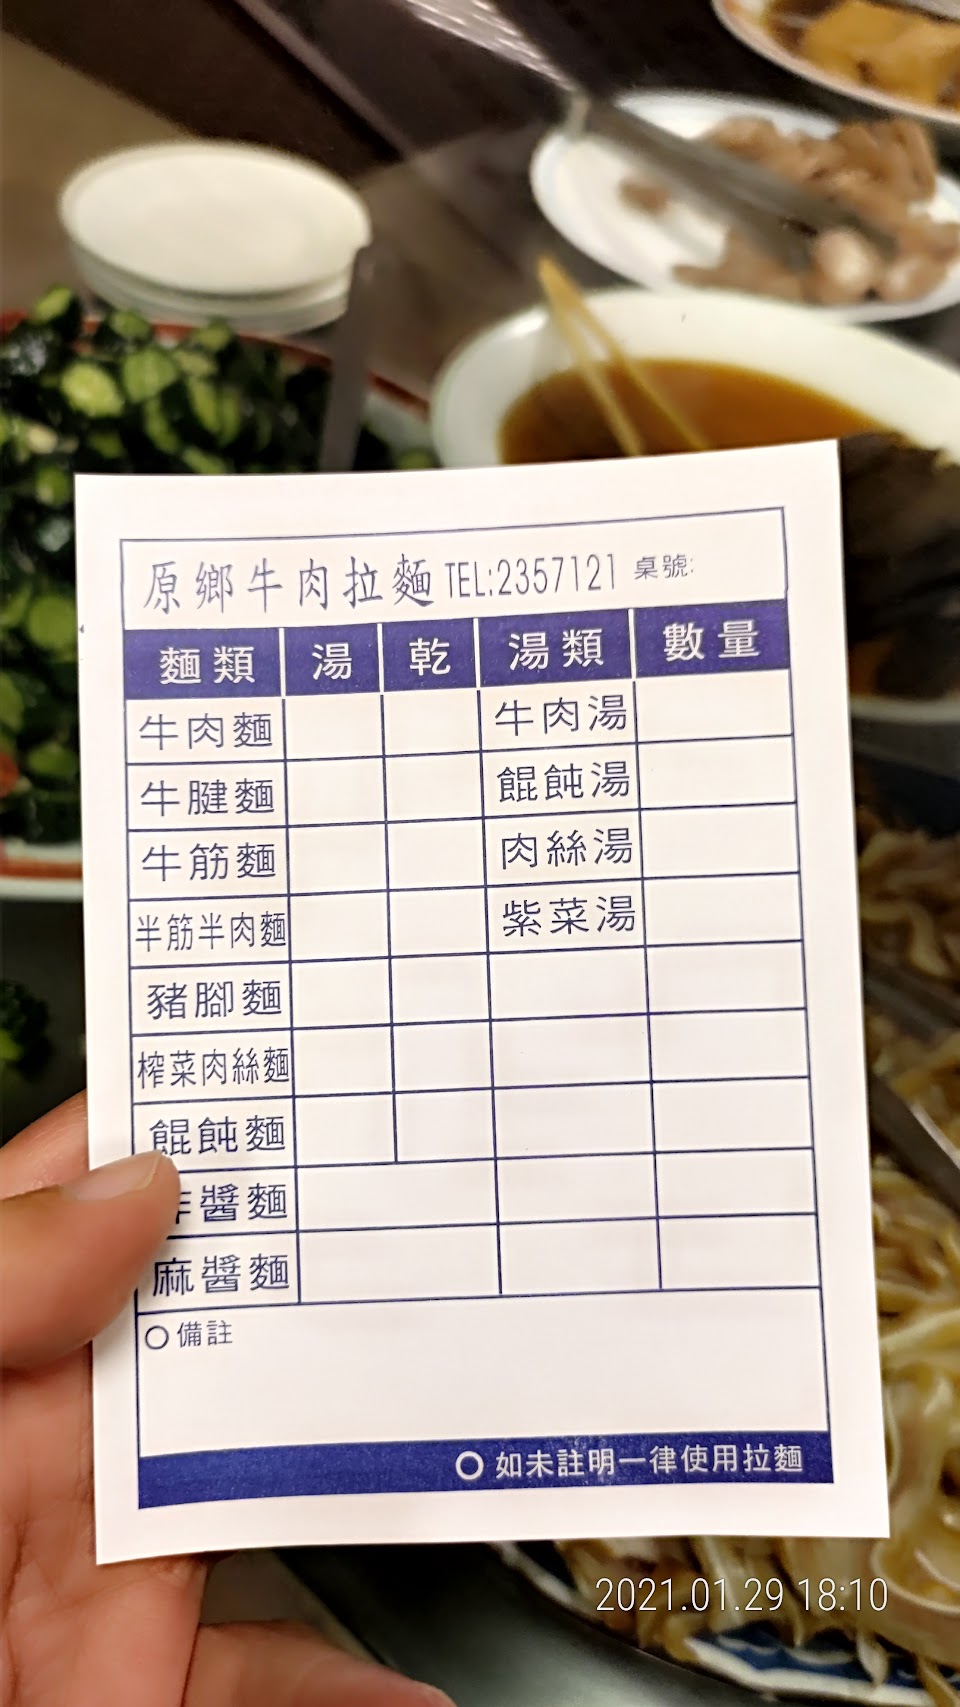 原鄉牛肉拉麵 TEL:2357121 桌號:
麵類 湯 乾 湯類 數量
牛肉麵 牛肉湯
牛腱麵 餛飩湯
牛筋麵 肉絲湯
半筋半肉麵 紫菜湯
豬腳麵
榨菜肉絲麵
餛飩麵
醬麵
麻醬麵
○備註
○如未註明一律使用拉麵
2021.01.29 18:10